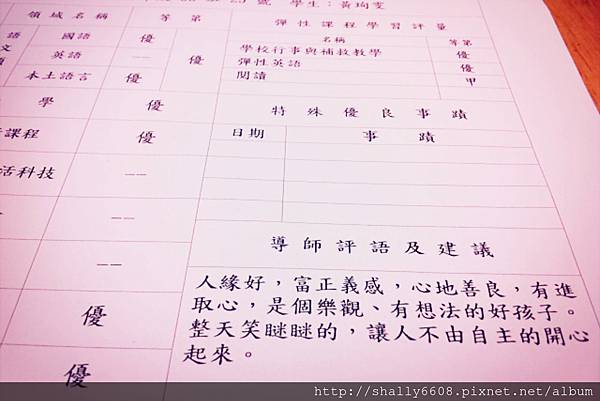 號 學生：黃珣雯
領域名稱 等第 彈性課程學習評量
語 國語 優 名稱 等第
文 英語 -- 優 學校行事與補救教學 優
彈性英語 優
本土語言 優 閱讀 甲
學 優 特殊優良事蹟
課程 優 日期 事蹟
活科技 --
--
-- 導師評語及建議
人緣好，富正義感，心地善良，有進
取心，是個樂觀、有想法的好孩子。
優 整天笑瞇瞇的，讓人不由自主的開心
起來。
優
http://shally6608.pixnet.net/album